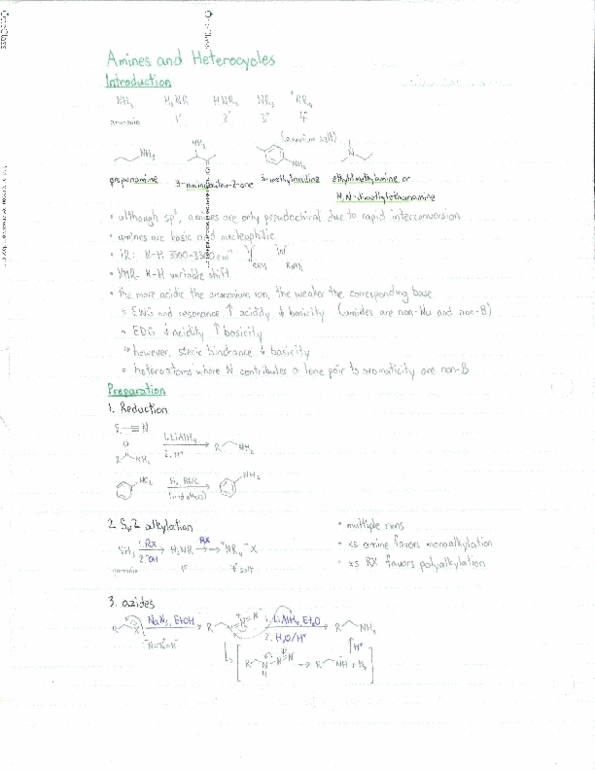 Amines and Heterocycles
Introduction
NH₃ H₂NR HNR₂ NR₃ ⁺RR₄
ammonia 1° 2° 3° 4°
(ammonium salt)
NH₂ NH₂ NH₂ N
propanamine 3-aminobutan-2-one 3-methylaniline ethyldimethylamine or
N,N-dimethylethanamine
• although sp³, amines are only pseudochiral due to rapid interconversion
• amines are basic and nucleophilic
• IR: N-H 3300-3500 cm⁻¹
• NMR: N-H variable shift
• the more acidic the ammonium ion, the weaker the corresponding base
EWG and resonance ↑ acidity ↓ basicity (amides are non-Nu and non-B)
EDG ↓ acidity ↑ basicity
however, steric hindrance ↓ basicity
heteroatoms where N contributes a lone pair to aromaticity are non-B
Preparation
1. Reduction
R ≡N
O 1. LiAlH₄
R NH₂ 2. H⁺ R NH₂
NO₂ H₂, Pd/C NH₂
2. SN2 alkylation • multiple rxns
NH₃ 1. RX H₂NR RX ⁺NR₄ ⁻X • xs amine favors monoalkylation
2. ⁻OH
ammonia 1° 4° salt • xs RX favors polyalkylation
3. azides
R X NaN₃, EtOH R N=N=N 1. LiAlH₄, Et₂O R NH₂
⁻N=N=N⁻ 2. H₂O/H⁺
H⁺
R N N≡N → R NH + N₂
H